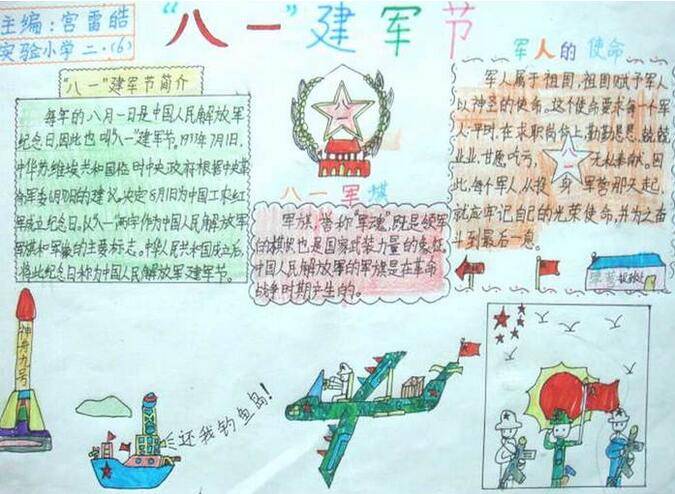 主编:宫雷皓
实验小学二·(6)
"八一"建军节
"八一"建军节简介
每年的八月一日是中国人民解放军
纪念日,因此也叫"八一"建军节。1933年7月1日,
中华苏维埃共和国临时中央政府根据中央革
命军委6月30日的建议,决定8月1日为中国工农红
军成立纪念日。以"八一"两字作为中国人民解放军
军旗和军徽的主要标志。中华人民共和国成立后,
将此纪念日称为中国人民解放军建军节。
八一
八一军旗
军旗,誉称"军魂",既是领军
的 也是国家武装力量的象征
中国人民解放军的军旗是在革命
战争时期产生的。
军人的使命
军人属于祖国,祖国赋予军人
以神圣的使命。这个使命要求每一个军
人平时,在求职岗位上,勤勤恳恳,兢兢
业业,甘愿吃亏,无私奉献。因
此,每个军人从投身军营那天起,
就应牢记自己的光荣使命,并为之奋
斗到最后一息。
八一
神舟九号
还我钓鱼岛!